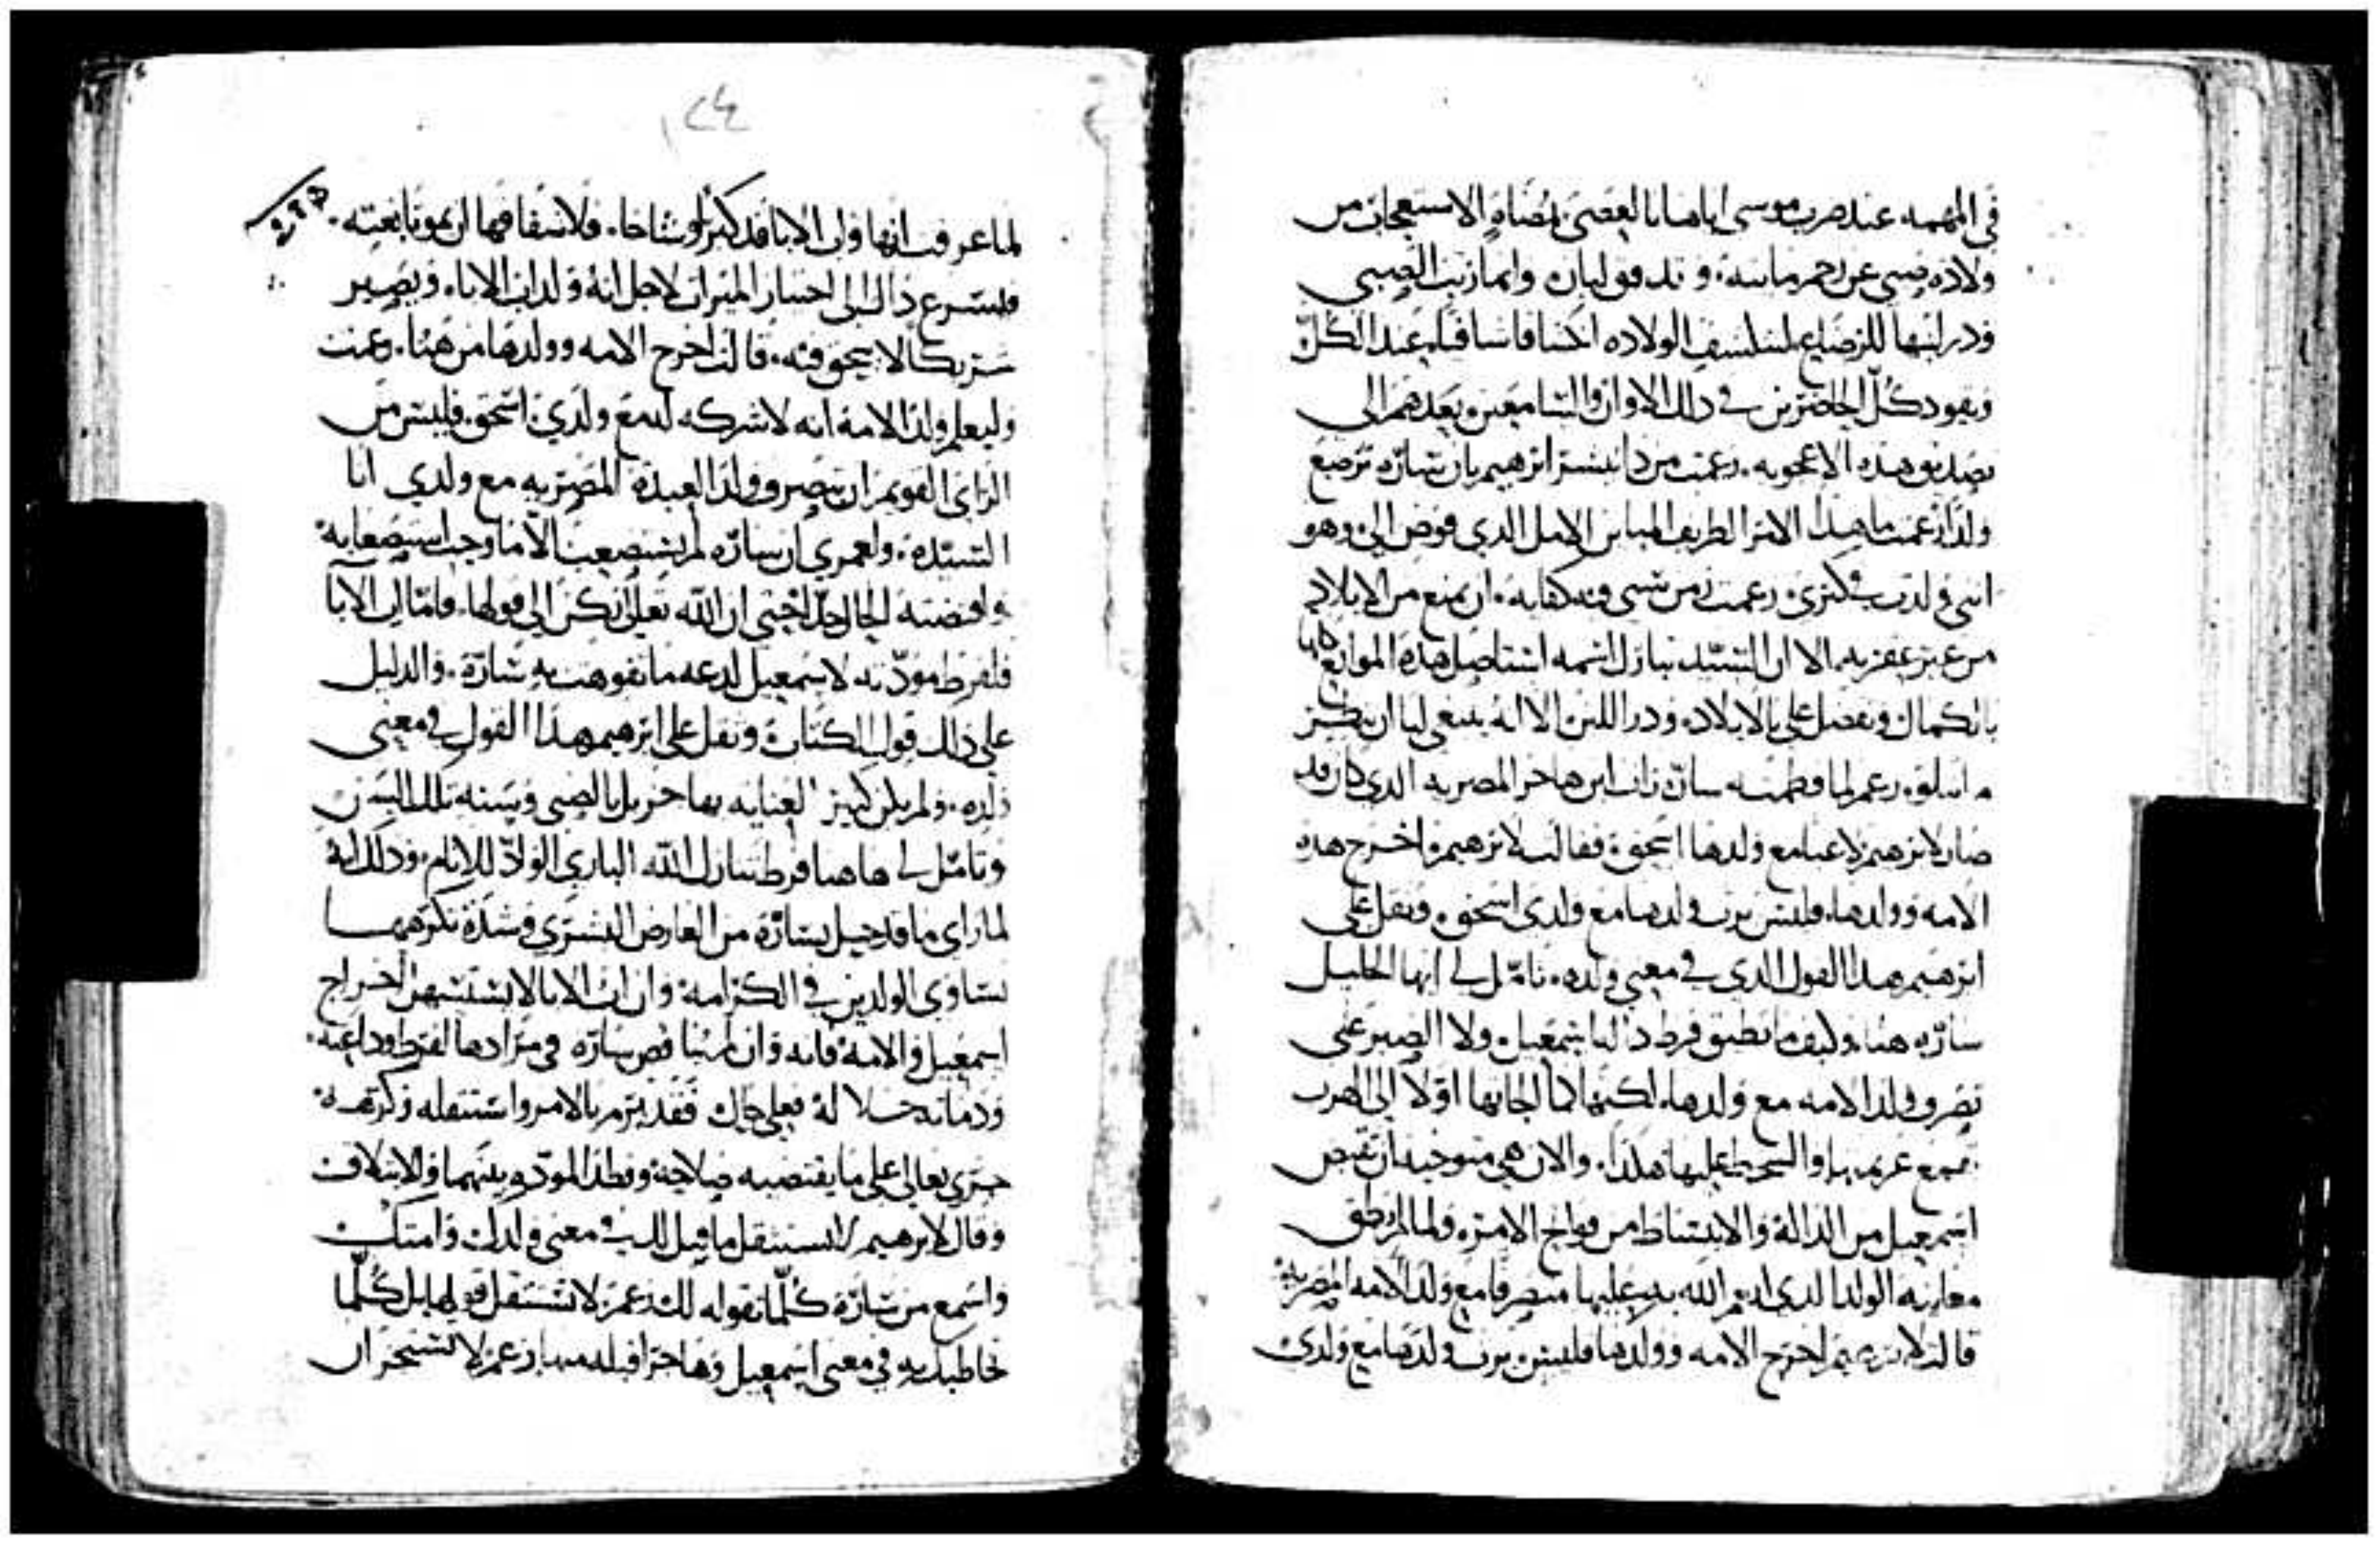 في المهمه عند ضرب موسى اياها بالعصى بمضاهاة الاستعجاب من
ولاده صبي عن رحم مايته وتدفق لبان وانما زنت الصبي
ودر لبنها للرضاع
ويقود كل الحاضرين في دلك الاوان والسامعين بعدهم الى
تصديق هده الاعجوبه زعمت من دا يبشر ابرهيم بان ساره ترضع
ولدًا زعمت ما هدا الامر الطريف المباين الامل الدي فوض الي وهو
انني ولدت في كبري زعمت من سني فيه كفايه ان يمنع من الايلاد
من غير عقر به الا ان السيد تبارك اسمه استاصل هده الموانع كلها
بالكمال وتفضل علي بالايلاد ودر اللبن الا انه ينبغي لنا ان ننظر
ما يتلوه زعم لما فطمته ساره رات ابن هاجر المصريه الدي كان قد
صار لابرهيم لاعبا مع ولدها اسحق فقالت لابرهيم اخرج هده
الامه وولدها فليس يرث ولدها مع ولدي اسحق وثقل على
ابرهيم هدا القول الدي في معنى ولده تامل لي ايها الخليل
ساره هنا وكيف ما تطيق فرط دالة اسمعيل ولا الصبر على
تصرف ولد الامه مع ولدها لكنها كما الجاتها اولا الى الهرب
والسخط عليها هكدا والان هي متوخيه ان تقبض
اسمعيل من الدالة والانبساط من فواتح الامر ولما لم تطق
معاينه الولد الدي انعم الله به عليها متصرفا مع ولد الامه المصريه
قالت لابرهيم اخرج الامه وولدها فليس يرث ولدها مع ولدي
١٢٤
لما عرفت انها وان الابا قد كبرا وشاخا فلاشفاقها ان يموتا بغتة
فيسرع داك الى اختيار الميراث لاجل انه ولد اب الاباء ويصير
شريكا لا بحق فيه قالت اخرج الامه وولدها من هنا زعمت
وليعلم ولد الامة انه لا شركه له مع ولدي اسحق فليس من
الراي القويم ان يتصرف ولد العبدة المصريه مع ولدي انا
السيده ولعمري ان ساره لم تستصعب الا ما وجب استصعابه
واقتضته الحال حتى ان الله تعالى ركن الى قولها فاما اب الابا
فلفرط مودته لاسمعيل لدعه ما تفوهت به سارة والدليل
على دلك قول الكتاب وثقل على ابرهيم هدا القول في معنى
ولده ولم يكن كبير العنايه بهاجر بل بالصبي وبسنه تلك السن
وتامل لي هاهنا فرط تنازل الله الباري الواد للانام ودلك انه
لما راى ما قد حل بسارة من العارض البشري وشدة تكرهها
تساوي الولدين في الكرامة وان اب الابا لا يستسهل اخراج
اسمعيل والامة فانه وان لم يناقض ساره في مرادها لفرط وداعته
ودماثة خلاله فعلى حال فقد تبرم بالامر واستثقله وكرهه
جرى تعالى على ما يقتضيه صلاحه ونظد المودة بينهما والايتلاف
وقال لابرهيم لا تستثقل ما قيل لك في معنى ولدك وامتك
واسمع من سارة كلما تقوله لك زعم لا تستثقل قولها بل كلما
خاطبتك به في معنى اسمعيل وهاجر اقبله منها زعم لا تستجز ان